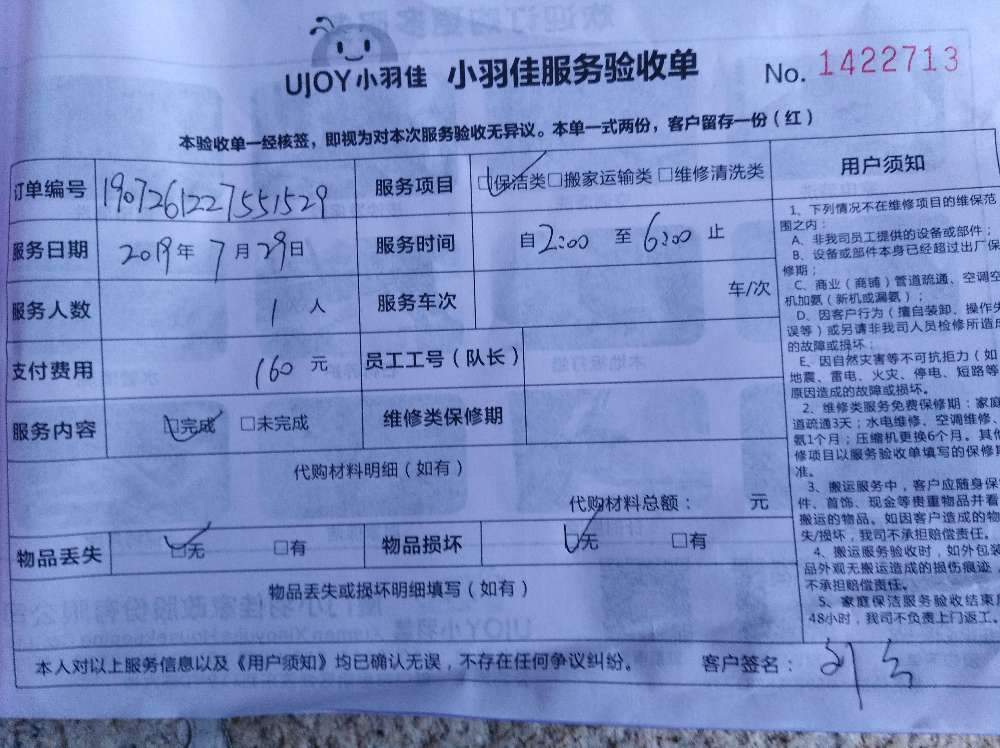 UJOY小羽佳 小羽佳服务验收单 No. 1422713
本验收单一经核签，即视为对本次服务验收无异议。本单一式两份，客户留存一份（红）
订单编号 1907261227551529 服务项目 □保洁类□搬家运输类 □维修清洗类
服务日期 2019年 7月 29日 服务时间 自2:00 至 6:00 止
服务人数 1 人 服务车次 车/次
支付费用 160 元 员工工号（队长）
服务内容 □完成 □未完成 维修类保修期
代购材料明细（如有）
代购材料总额： 元
物品丢失 □无 □有 物品损坏 □无 □有
物品丢失或损坏明细填写（如有）
本人对以上服务信息以及《用户须知》均已确认无误，不存在任何争议纠纷。 客户签名：
用户须知
1、下列情况不在维修项目的维保范
围之内：
A、非我司员工提供的设备或部件；
B、设备或部件本身已经超过出厂保
修期；
C、商业（商铺）管道疏通、空调空
机加氨（新机或漏氨）；
D、因客户行为（擅自装卸、操作失
误等）或另请非我司人员检修所造成
的故障或损坏；
E、因自然灾害等不可抗拒力（如
地震、雷电、火灾、停电、短路等
原因造成的故障或损坏。
2、维修类服务免费保修期：家庭
道疏通3天；水电维修、空调维修、
氨1个月；压缩机更换6个月。其他
修项目以服务验收单填写的保修期
准。
3、搬运服务中，客户应随身保
件、首饰、现金等贵重物品并看
搬运的物品。如因客户造成的物
失/损坏，我司不承担赔偿责任。
4、搬运服务验收时，如外包装
品外观无搬运造成的损伤痕迹，
不承担赔偿责任。
5、家庭保洁服务验收结束后
48小时，我司不负责上门返工。